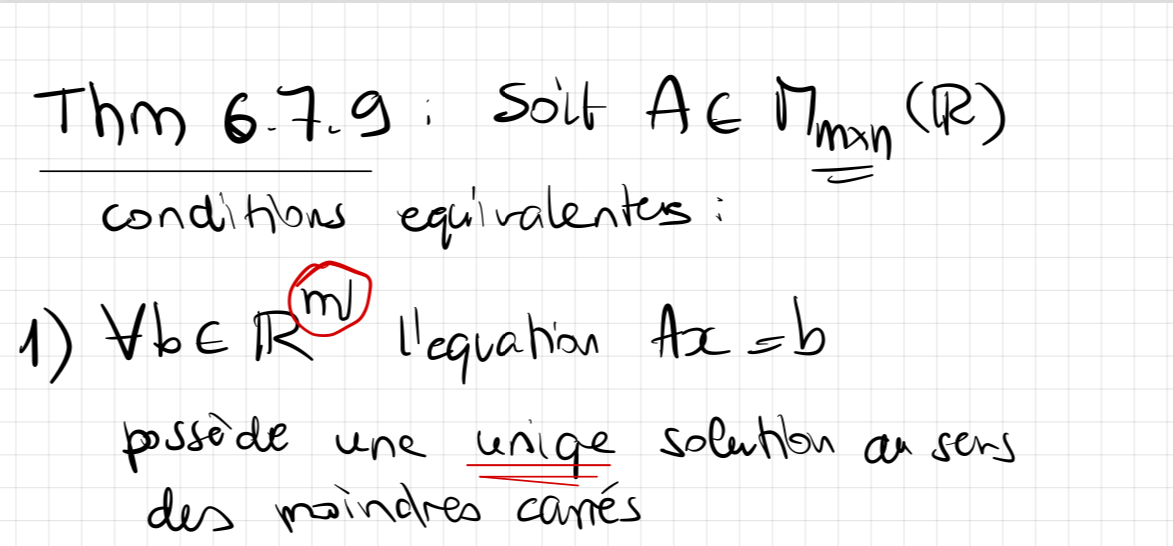 Thm 6.7.9 : Soit A ∈ M_{m×n} (ℝ)
conditions equivalentes :
1) ∀b ∈ ℝ^m l'equation Ax = b
possède une uniqe solution au sens
des moindres carrés